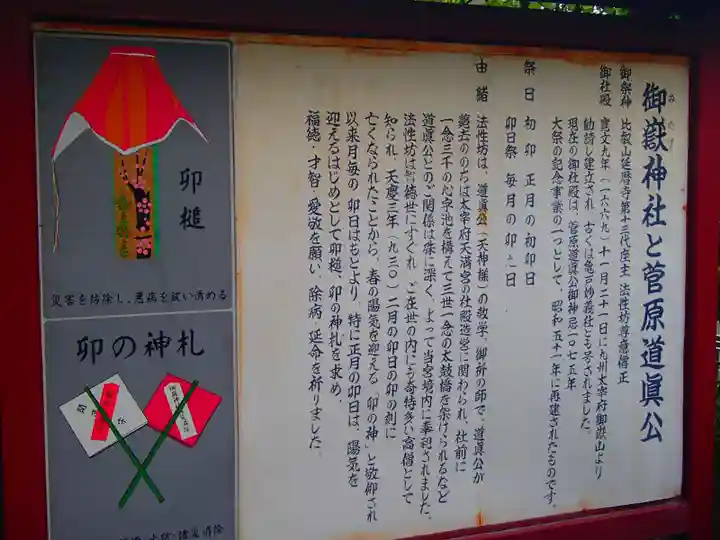 御嶽神社と菅原道眞公
みたけ
御祭神 比叡山延暦寺第十三代座主 法性坊尊意僧正
御社殿 寛文九年(一六六九)十一月二十一日に九州太宰府御嶽山より
勧請し建立され 古くは亀戸妙義社とも号されました。
現在の御社殿は、菅原道眞公御神忌一〇七五年
大祭の記念事業の一つとして、昭和五十一年に再建されたものです。
祭日 初卯 正月の初卯日
卯日祭 毎月の卯の日
由緒 法性坊は、道眞公(天神様)の教学、御祈の師で、道眞公が
薨去ののちは太宰府天満宮の社殿造営に関わられ、社前に
一念三千の心字池を構えて三世一念の太鼓橋を架けられるなど
道眞公とのご関係は殊に深く、よって当宮境内に奉祀されました。
法性坊は智徳世にすぐれ ご在世の内にも奇特多い高僧として
知られ、天慶三年(九三〇)二月の卯日の卯の刻に
亡くなられたことから、春の陽気を迎える「卯の神」と敬仰され
以来月毎の 卯日はもとより 特に正月の卯日は、陽気を
迎えるはじめとして卯槌、卯の神札を求め、
福徳、才智、愛敬を願い、除病 延命を祈りました。
卯槌
災害を防除し、悪病を祓い清める
卯の神札